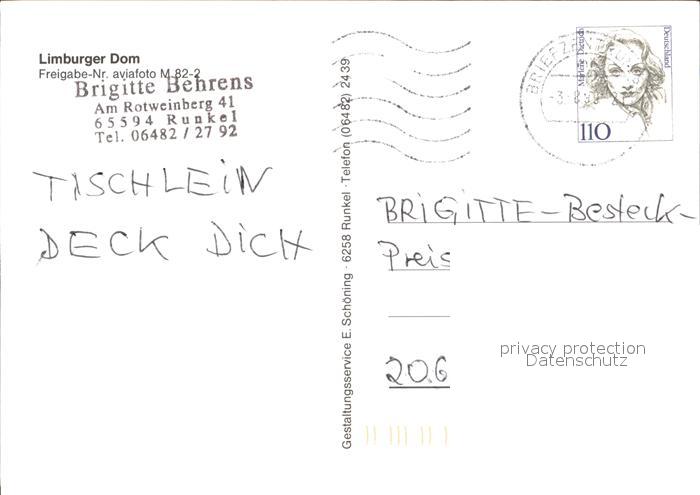 Limburger Dom
Freigabe-Nr. aviafoto M 82-2
Brigitte Behrens
Am Rotweinberg 41
65594 Runkel
Tel. 06482 / 27 92
TISCHLEIN
DECK DICH
Gestaltungsservice E. Schöning · 6258 Runkel · Telefon (06482) 2439
BRIEFZEN
Marlene Dietrich
Deutschland
110
BRIGITTE-Besteck-
Preis
20.6
privacy protection
Datenschutz